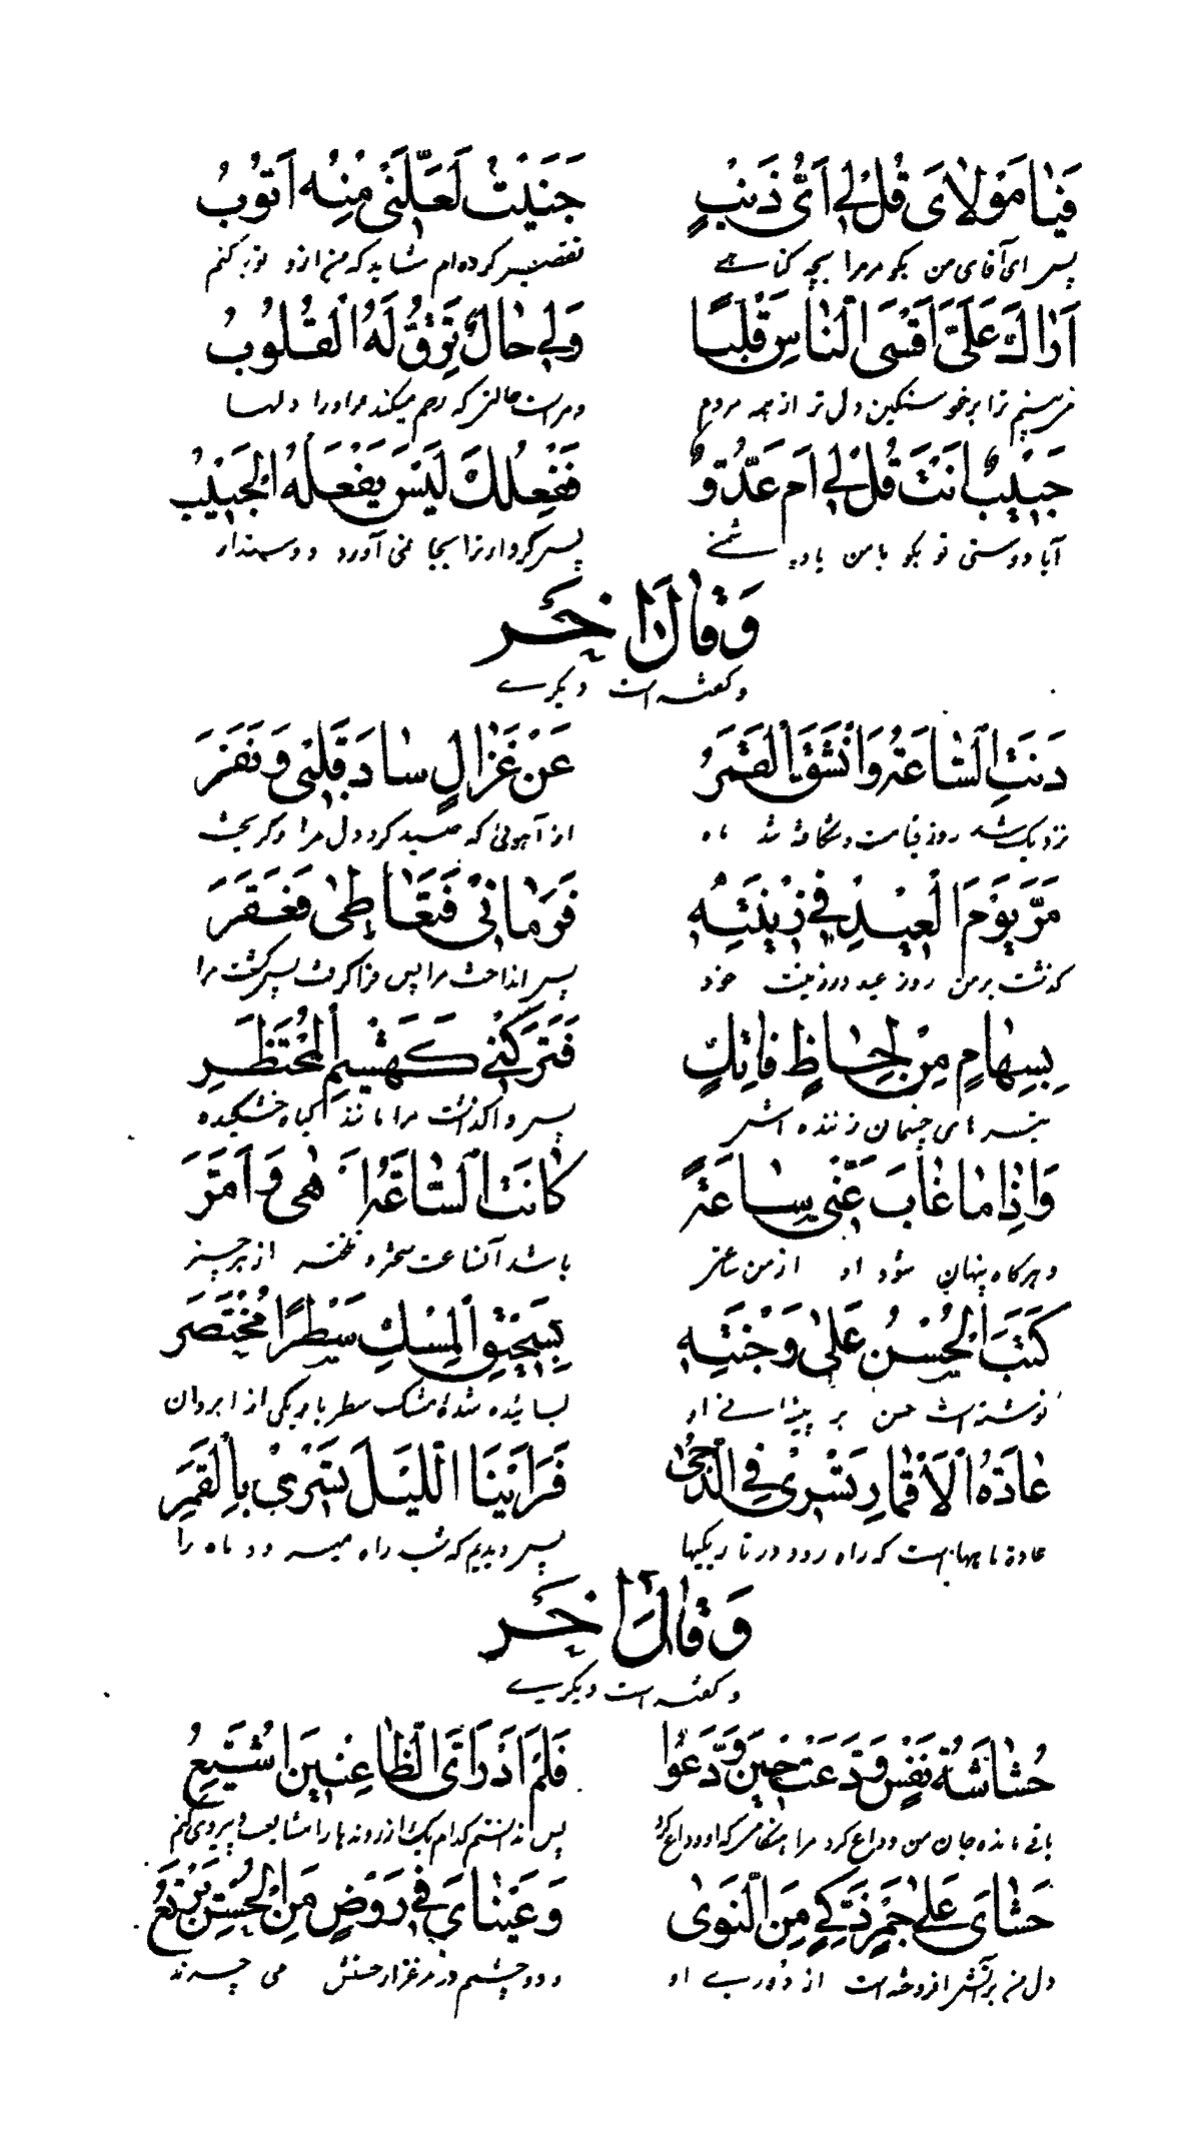 فَيٰا مَوْلاٰیَ قُلْ لِي اَیُّ ذَنْبٍ جَنَيْتُ لَعَلَّنِي مِنْهُ اَتُوبُ
پس ای آقای من بگو مرا بچه گناهے تقصیر کرده‌ام شاید که من از او توبه کنم
اَرٰاكَ عَلَیَّ اَقْسَی النّٰاسِ قَلْبًا وَلِي حٰالٌ تَرِقُّ لَهُ الْقُلُوبُ
می‌بینم ترا بر خود سنگین دل تر از همه مردم و مراست حالتی که رحم میکند مر او را دلها
حَبِيبٌ اَنْتَ قُلْ لِي اَمْ عَدُوٌّ فَفِعْلُكَ لَيْسَ يَفْعَلُهُ الْحَبِيبُ
آیا دوستی تو بگو با من یا دشمنے پس کردار ترا بجا نمی آورد دوستدار
وَقٰالَ اٰخَر
و گفته است دیگرے
دَنَتِ السّٰاعَةُ وَانْشَقَّ الْقَمَرُ عَنْ غَزٰالٍ صٰادَ قَلْبِي وَنَفَرَ
نزدیک شد روز قیامت و شکافته شد ماه از آهوئی که صید کرد دل مرا و گریخت
مَرَّ يَوْمَ الْعِيْدِ فِي زِيْنَتِهِ فَرَمٰانِي فَتَعٰاطٰی فَعَقَرَ
گذشت بر من روز عید در زینت خود پس انداخت مرا پس فرا گرفت پس کشت مرا
بِسِهٰامٍ مِنْ لِحٰاظٍ فٰاتِكٍ فَتَرَكَنِي كَهَشِيمِ الْمُحْتَظَرِ
بتیرهای چشمان زننده اش پس واگذاشت مرا مانند گیاه خشکیده
وَاِذٰا مٰا غٰابَ عَنِّي سٰاعَةً كٰانَتِ السّٰاعَةُ اَدْهٰی وَاَمَرَّ
و هرگاه پنهان شود او از من ساعتی باشد آنساعت سخت‌تر و تلختر از هر چیز
كَتَبَ الْحُسْنُ عَلٰی وَجْنَتِهِ بِسَحِيْقِ الْمِسْكِ سَطْرًا مُخْتَصَر
نوشته است حسن بر پیشانے او بسائیده شدهٔ مشک سطر باریکی از ابروان
عٰادَةُ الْاَقْمٰارِ تَسْرِي فِي الدُّجٰی فَرَاَيْنَا الْلَيْلَ يَسْرِيْ بِالْقَمَرِ
عادة ماهها است که راه رود در تاریکیها پس دیدیم که شب راه میرود ماه را
وَقٰالَ اٰخَر
و گفته است دیگرے
حُشٰاشَةُ نَفْسٍ وَدَّعَتْ حِيْنَ وَدَّعُوا فَلَمْ اَدْرِ اَیَّ الظّٰاعِنِيْنَ اُشَيِّعُ
باقے مانده جان من وداع کرد مرا هنگامیکه او وداع کرد پس ندانستم کدام یک از روندها را مشایعت و پیروی کنم
حَشٰایَ عَلٰی جَمْرٍ ذَكِيٍّ مِنَ النَّوٰی وَعَيْنٰایَ فِي رَوْضٍ مِنَ الْحُسْنِ تَرْتَعُ
دل من بر آتش افروخته است از دوریے او و دو چشم در مرغزار حسنش می چرند